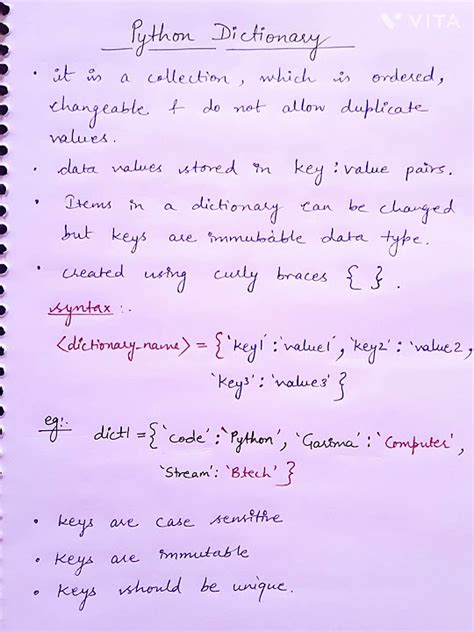 VITA
Python Dictionary
• it is a collection, which is ordered,
changeable & do not allow duplicate
values.
• data values stored in key : value pairs.
• Items in a dictionary can be changed
but keys are immubable data type.
• created using curly braces { }.
syntax :-
<dictionary_name> = {'key1' : 'value1', 'key2' : 'value2,
'key3' : 'values3' }
eg:- dict1 = {'Code' : 'Python', 'Garima' : 'Computer',
'Stream' : 'Btech' }
• keys are case sensitive
• keys are immutable
• keys should be unique.